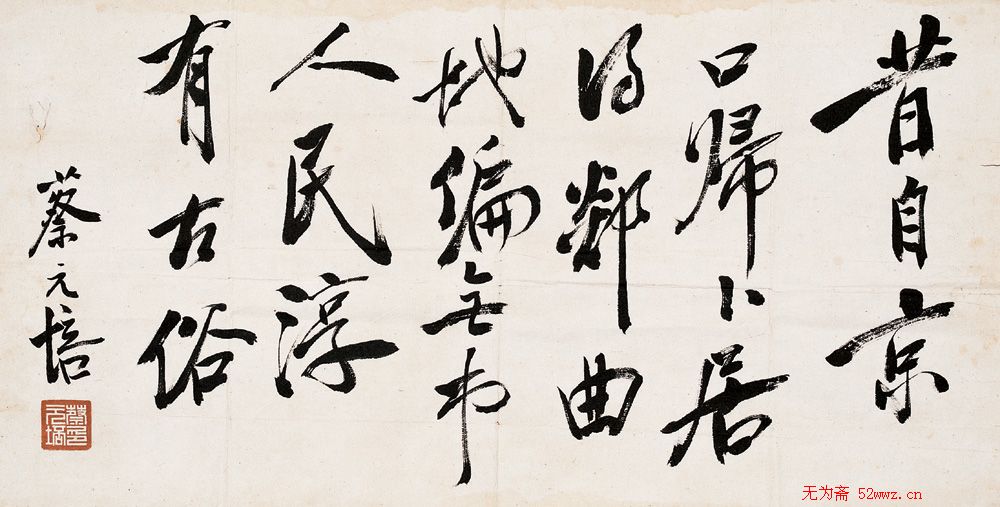 昔自京
口歸卜居
得鄰曲
地偏無市
人民淳
有古俗
蔡元培
蔡元培印
无为斋 52wwz.cn